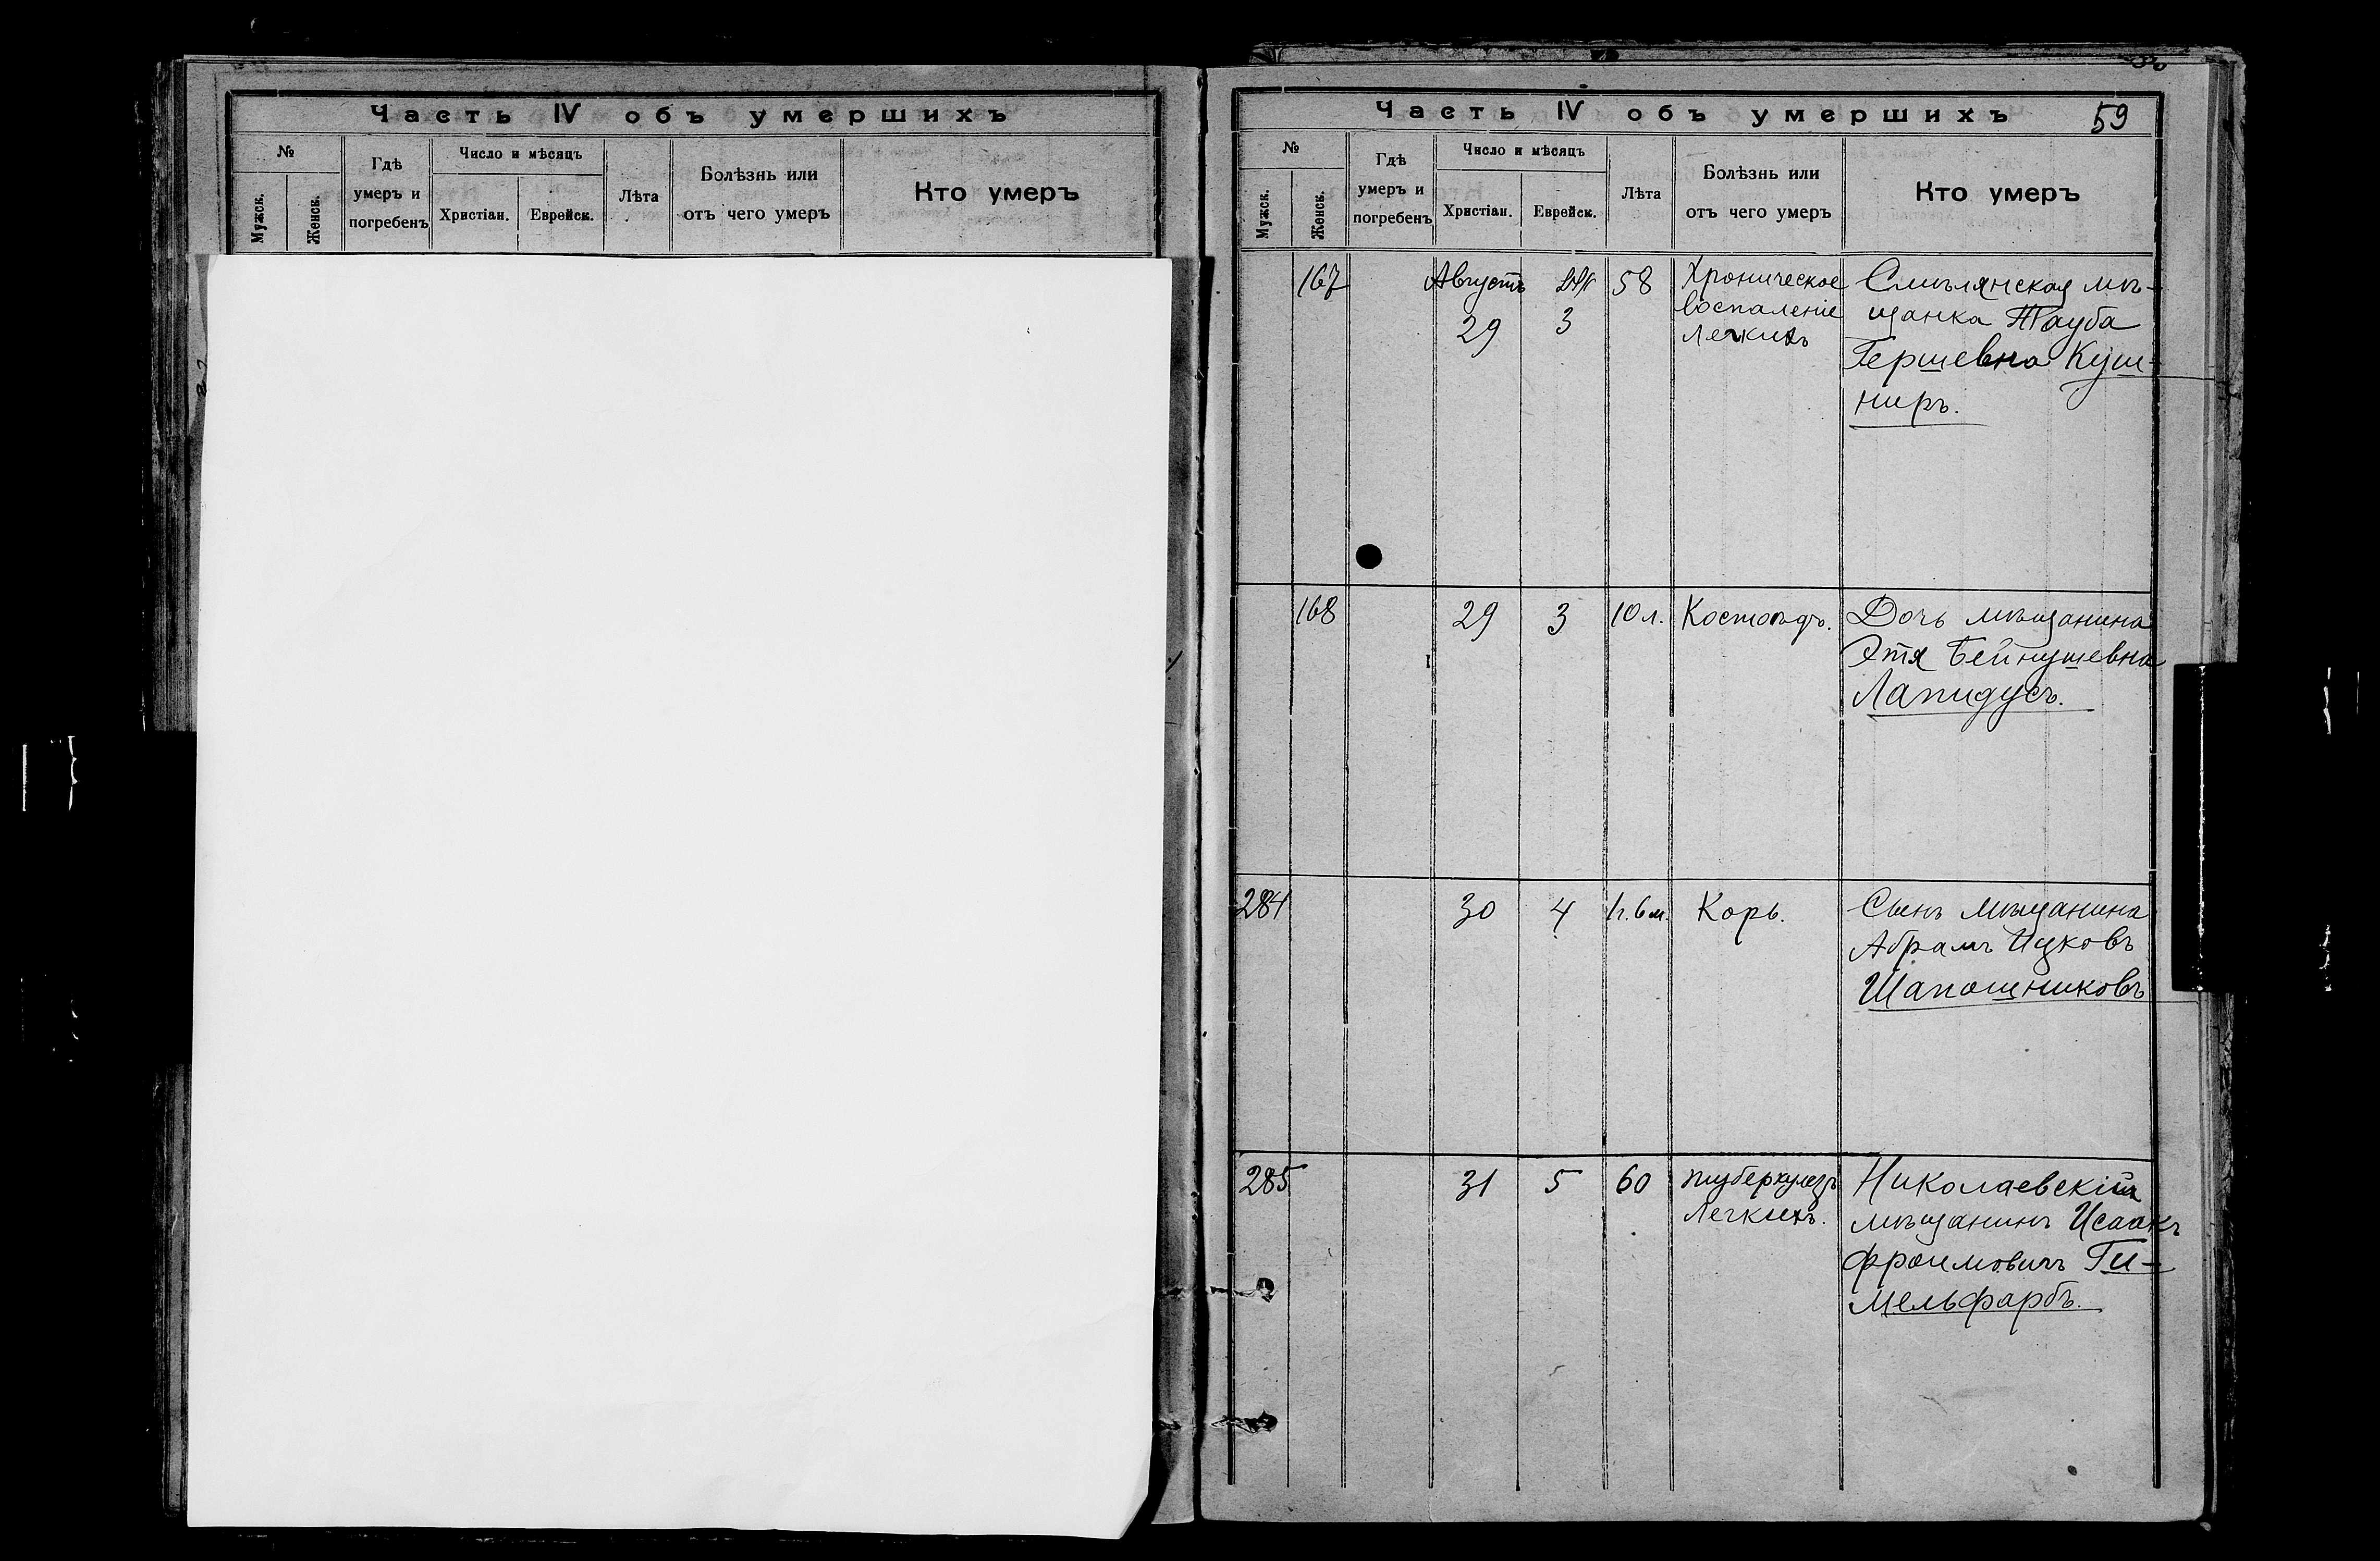 Часть IV объ умершихъ
№
Мужск.
Женск.
Гдѣ
умеръ и
погребенъ
Число и мѣсяцъ
Христіан.
Еврейск.
Лѣта
Болѣзнь или
отъ чего умеръ
Кто умеръ
Часть IV объ умершихъ
59
№
Мужск.
Женск.
Гдѣ
умеръ и
погребенъ
Число и мѣсяцъ
Христіан.
Еврейск.
Лѣта
Болѣзнь или
отъ чего умеръ
Кто умеръ
167
Августъ
29
3
58
Хроническое
воспаленіе
легкихъ
Смѣлянская мѣ-
щанка Тауба
Гершевна Куш-
ниръ.
168
29
3
10 л.
Костоѣдъ.
Дочь мѣщанина
Этя Бейнушевна
Лапидусъ.
284
30
4
1 г. 6 м.
Корь.
Сынъ мѣщанина
Абрамъ Ицковъ
Шапошниковъ
285
31
5
60
туберкулезъ
легкихъ.
Николаевскій
мѣщанинъ Исаакъ
Фроимовичъ Ги-
мельфарбъ.